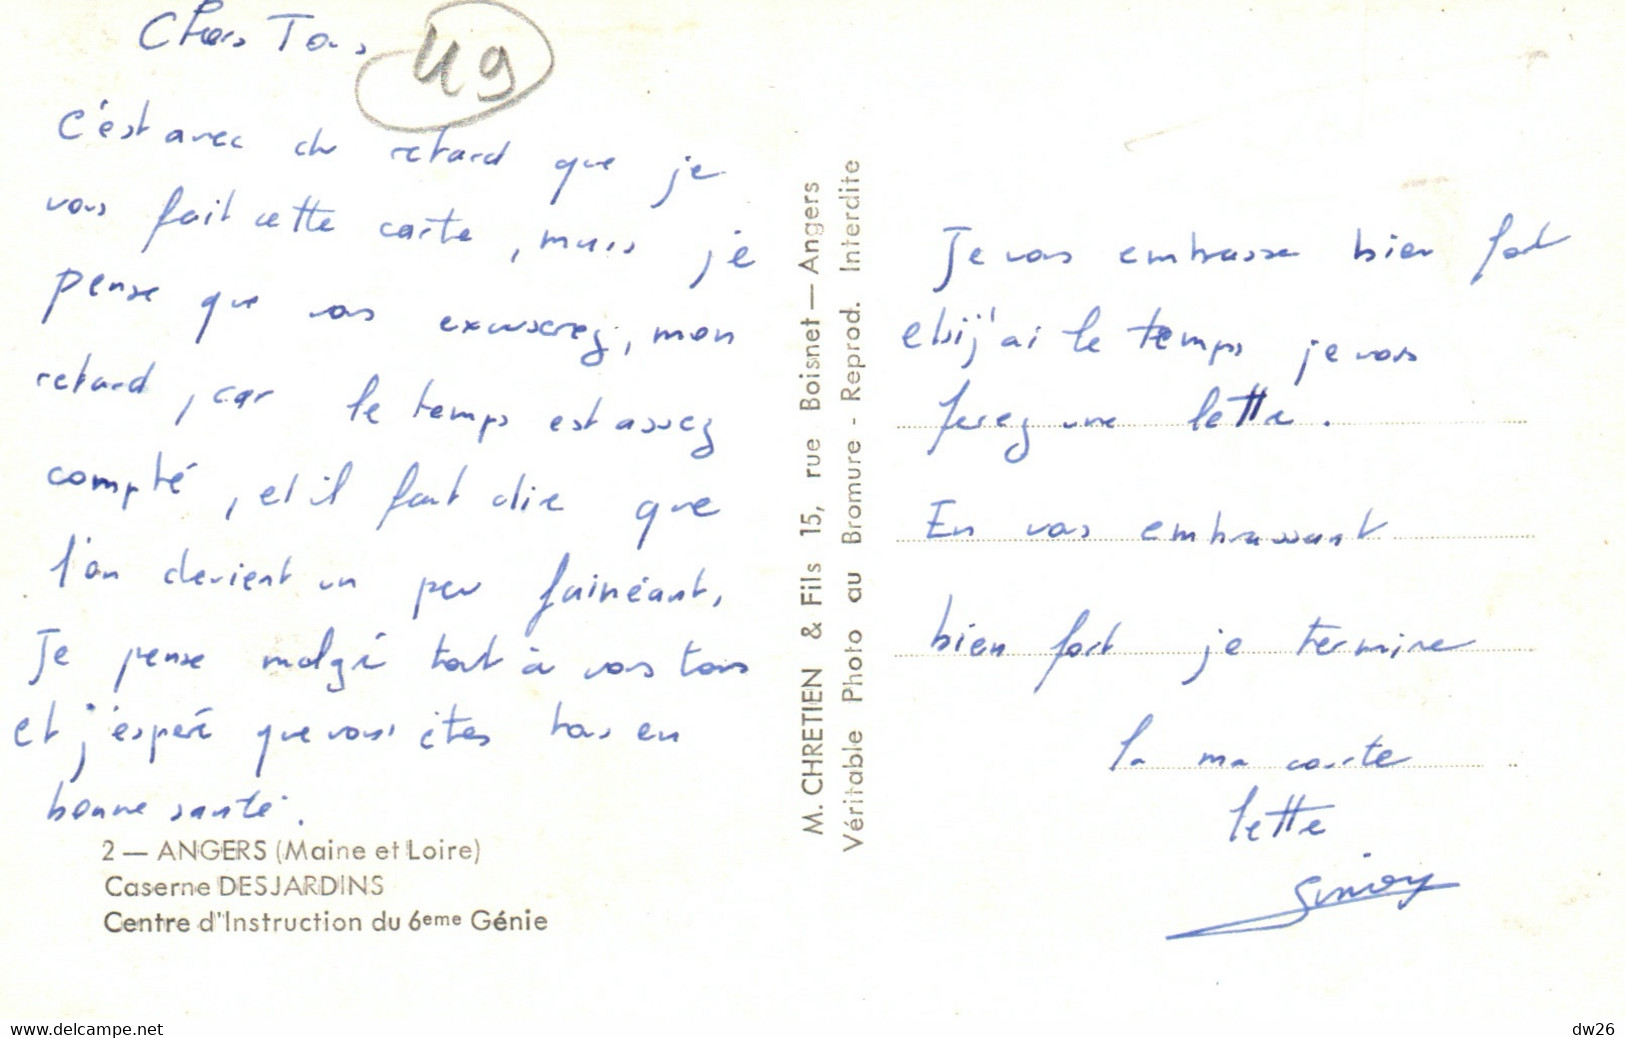 Chers Tous
49
C'est avec du retard que je
vous fait cette carte, mais je
pense que vous excuserez, mon
retard, car le temps est assez
compté, et il faut dire que
l'on devient un peu fainéant,
Je pense malgré tout à vous tous
et j'espéré que vous êtes tous en
bonne santé.
2 — ANGERS (Maine et Loire)
Caserne DESJARDINS
Centre d'Instruction du 6eme Génie
M. CHRETIEN & Fils 15, rue Boisnet — Angers
Véritable Photo au Bromure - Reprod. Interdite
Je vous embrasse bien fort
et si j'ai le temps je vous
ferez une lettre.
En vous embrassant
bien fort je termine
la ma carte
lettre
www.delcampe.net
dw26